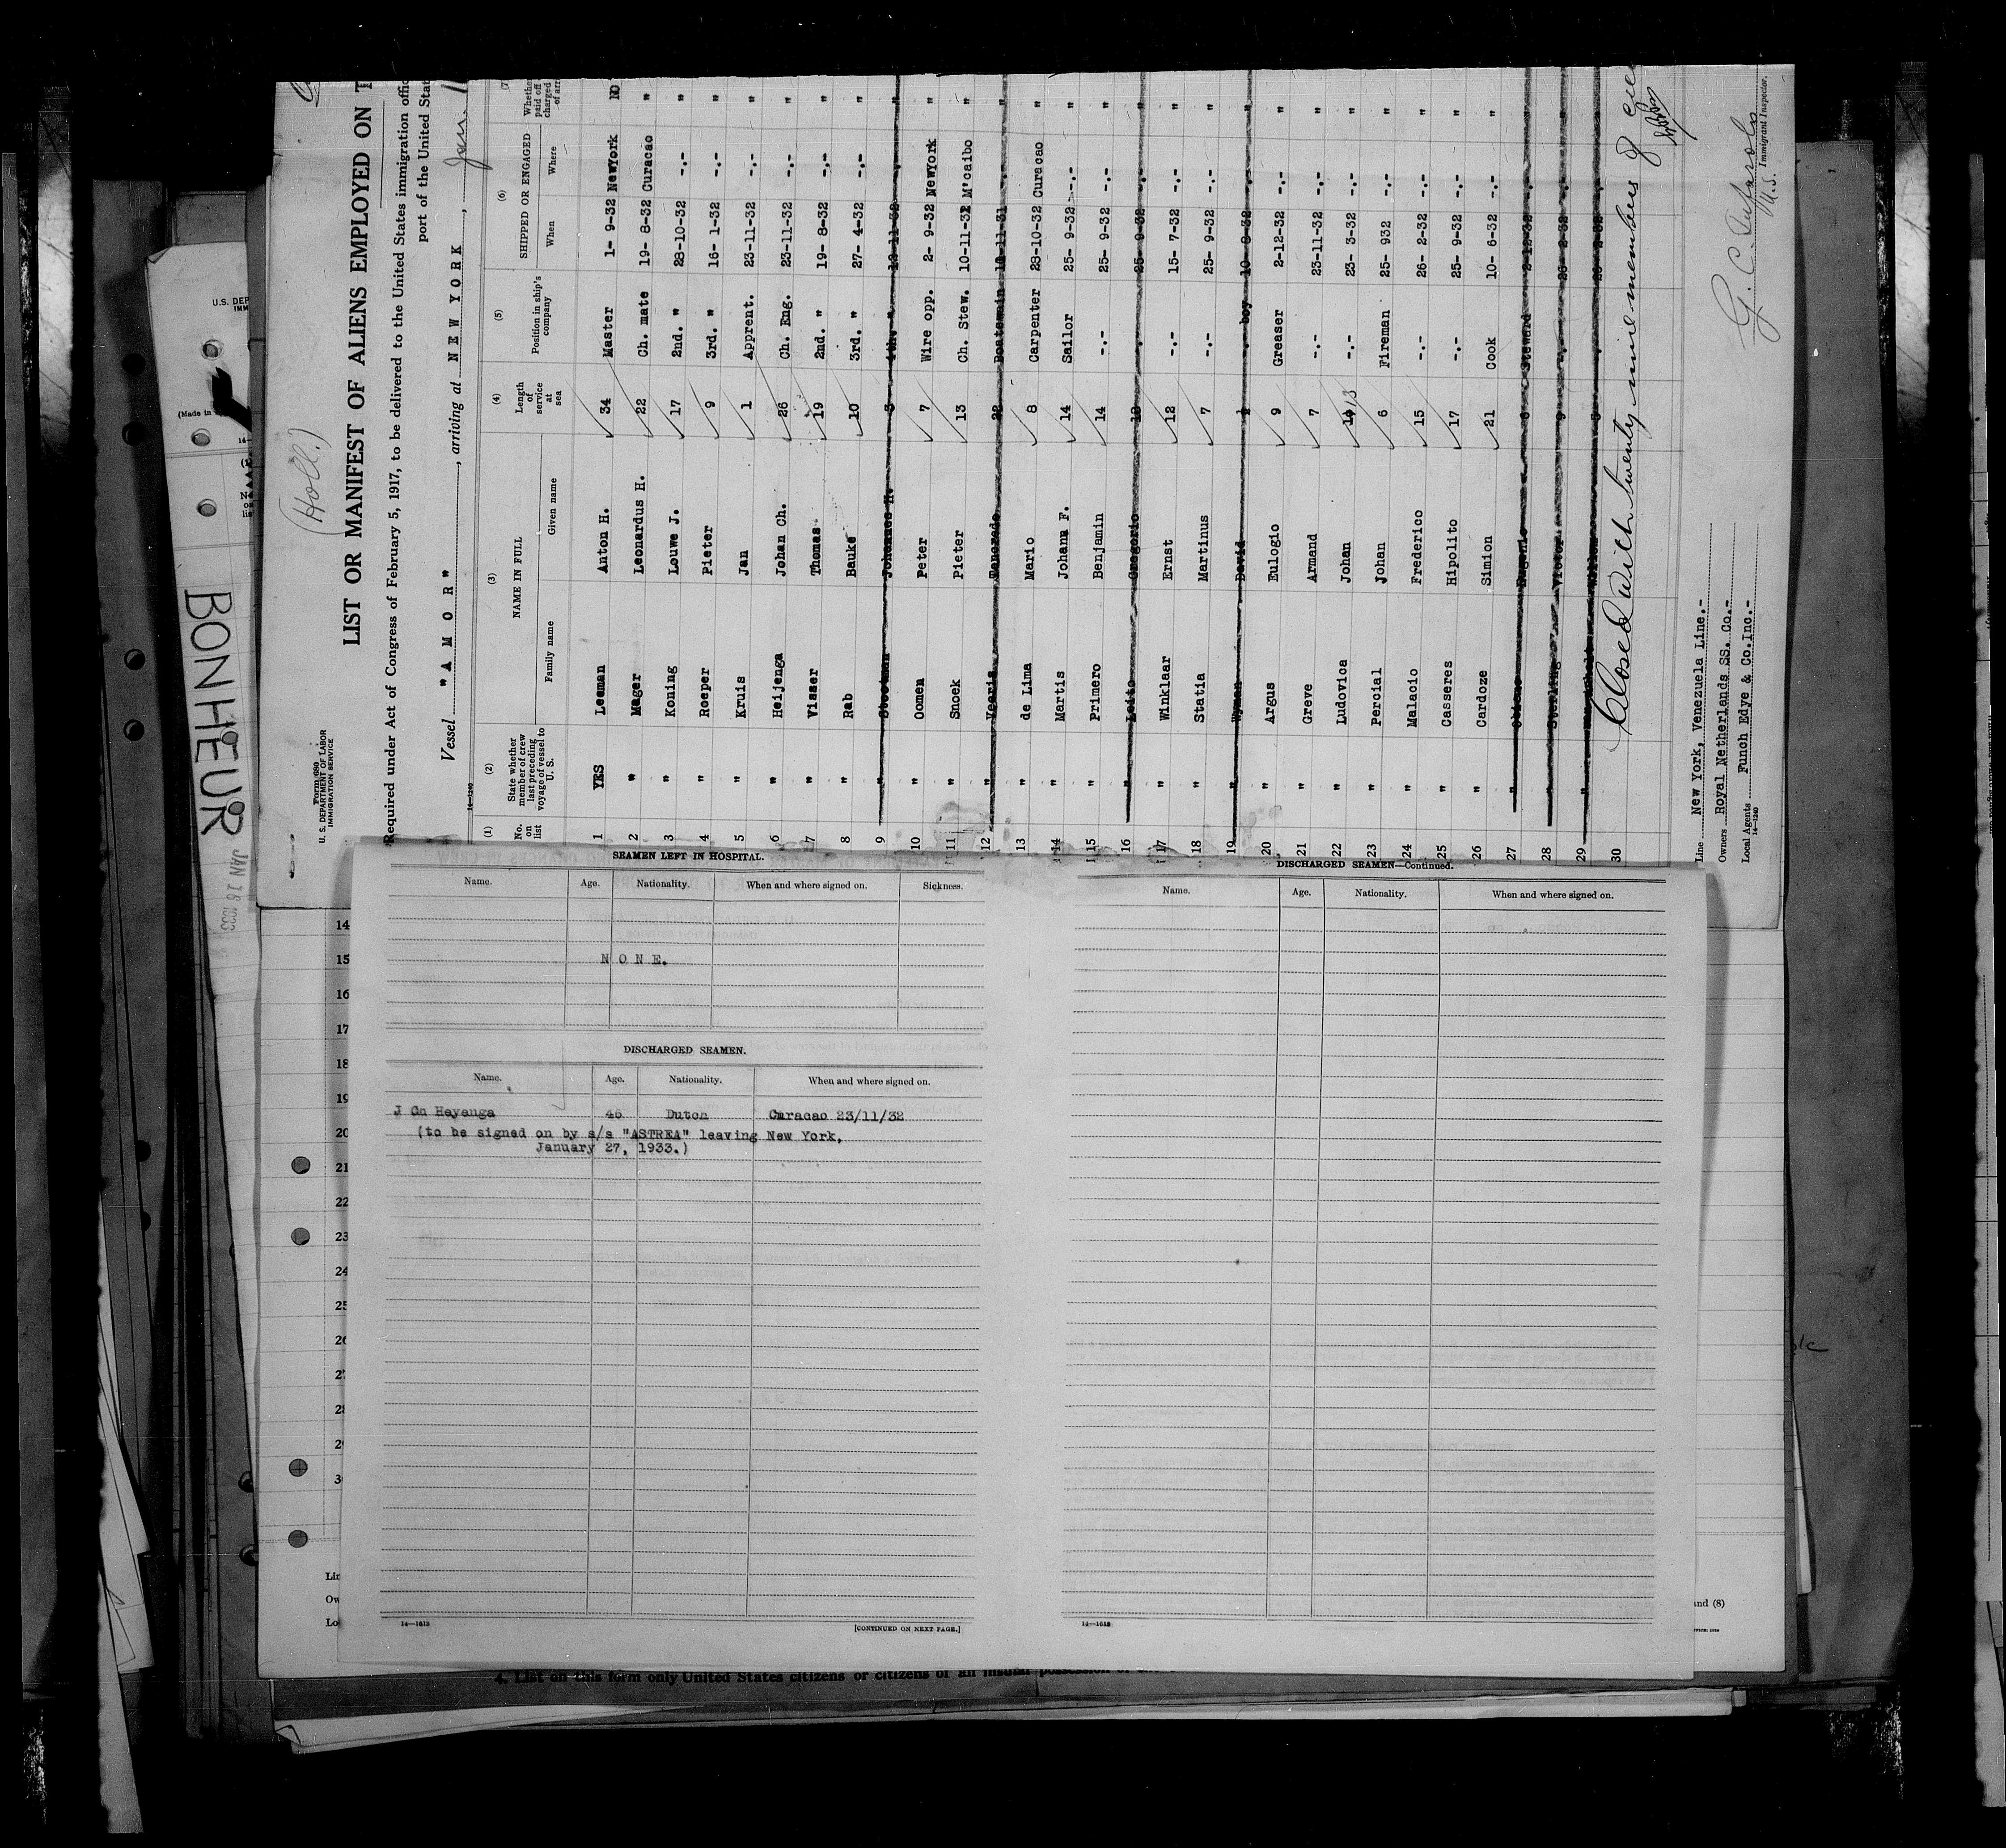 (Holl.)
Form 689
U. S. DEPARTMENT OF LABOR
IMMIGRATION SERVICE
LIST OR MANIFEST OF ALIENS EMPLOYED ON T
Required under Act of Congress of February 5, 1917, to be delivered to the United States immigration offic
port of the United Stat
Vessel "A M O R", arriving at NEW YORK, Jan. 1
14—1240
(1) (2) (3) (4) (5) (6) (7)
No. on list
State whether member of crew last preceding voyage of vessel to U. S.
NAME IN FULL
Family name Given name
Length of service at sea
Position in ship's company
SHIPPED OR ENGAGED
When Where
Whethe paid off charged of arr
1 YES Leeman Anton H. 34 Master 1- 9-32 NewYork NO
2 " Mager Leonardus H. 22 Ch. mate 19- 8-32 Curacao "
3 " Koning Louwe J. 17 2nd. " 28-10-32 -.- "
4 " Roeper Pieter 9 3rd. " 16- 1-32 -.- "
5 " Kruis Jan 1 Apprent. 23-11-32 -.- "
6 " Heijenga Johan Ch. 26 Ch. Eng. 23-11-32 -.- "
7 " Visser Thomas 19 2nd. " 19- 8-32 -.- "
8 " Rab Bauke 10 3rd. " 27- 4-32 -.- "
9 " Johannes H. 3 4th. "
10 " Oomen Peter 7 Wire opp. 2- 9-32 NewYork "
11 " Snoek Pieter 13 Ch. Stew. 10-11-32 M'caibo "
12 " Boatswain
13 " de Lima Mario 8 Carpenter 28-10-32 Curacao "
14 " Martis Johann F. 14 Sailor 25- 9-32 -.- "
15 " Primero Benjamin 14 -.- 25- 9-32 -.- "
16 " Leito Gregorio -.- 25- 9-32 -.- "
17 " Winklaar Ernst 12 -.- 15- 7-32 -.- "
18 " Statia Martinus 7 -.- 25- 9-32 -.- "
19 " Wyman David boy 10-8-32 "
20 " Argus Eulogio 9 Greaser 2-12-32 -.- "
21 " Greve Armand 7 -.- 23-11-32 -.- "
22 " Ludovica Johan 13 -.- 23- 3-32 -.- "
23 " Percial Johan 6 Fireman 25- 932 -.- "
24 " Malacio Frederico 15 -.- 26- 2-32 -.- "
25 " Casseres Hipolito 17 -.- 25- 9-32 -.- "
26 " Cardoze Simion 21 Cook 10- 6-32 -.- "
27 " Eugenio 6 Steward 2-12-32
28 " Sterling Victor 9
29 "
30
Closed with twenty nine members of
Line New York, Venezuela Line.-
Owners Royal Netherlands SS. Co.-
Local Agents Funch Edye & Co.Inc.-
14—1240
U.S. Immigrant Inspector.
BONHEUR
JAN 16 1933
U.S. DEP
(Made in
SEAMEN LEFT IN HOSPITAL.
Name. Age. Nationality. When and where signed on. Sickness.
N O N E.
DISCHARGED SEAMEN.
Name. Age. Nationality. When and where signed on.
J Ch Heyenga 46 Dutch Curacao 23/11/32
(to be signed on by s/s "ASTREA" leaving New York,
January 27, 1933.)
14—1613 [CONTINUED ON NEXT PAGE.]
DISCHARGED SEAMEN—Continued.
Name. Age. Nationality. When and where signed on.
14—1613
14
15
16
17
18
19
20
21
22
23
24
25
26
27
28
29
30
Lin
Ow
Lo
and (8)
4. List on this form only United States citizens or citizens of an insular possession of